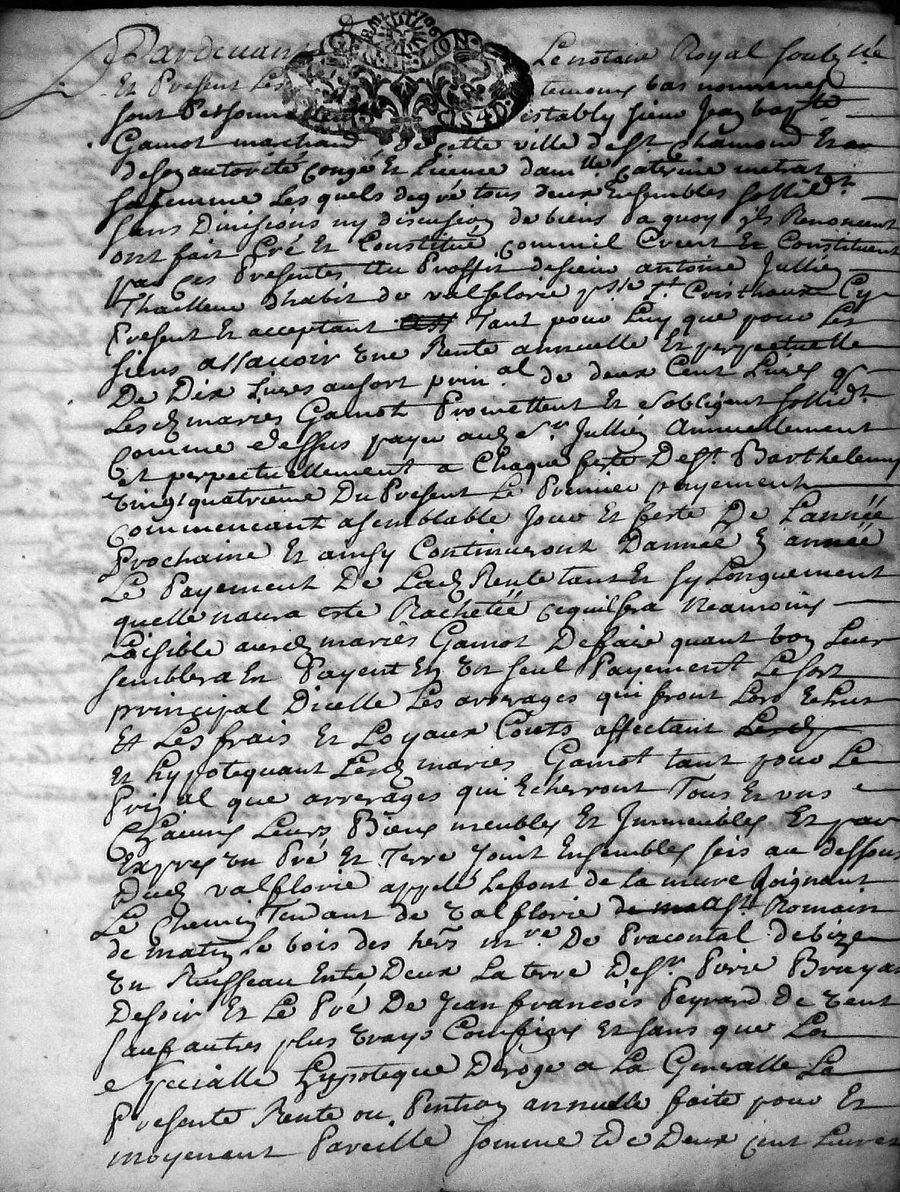 Pardevant Le notaire Royal soubz.né
Et Present Les temoins bas nommes
sont Personne establi sieur Jean bapte
Gamot marchand de cette ville de St chamond Et
de son autorité congé Et Licence damlle Caterine metrat
sa femme Les quels de gré tous deux Ensembles sollidt
sans Divisions ny discusion de biens a quoy ils Renoncent
ont fait Créé Et Constitué comme il Creent Et Constituent
par ces Presentes Au Proffit de sieur antoine Jullien
Thailleur dhabit de valflorie psse St Cristhau Cy
Present Et acceptant Tant pour Luy que pour Les
siens assavoir une Rente annuelle Et perpetuelle
De Dix Livres au sort prinal de deux Cent Livres q
Lesd maries Gamot Promettent Et sobligent sollidt
comme dessus payer aud Sr Jullien Annuellement
et perpetuellement a Chaque feste De St Barthelemy
vingt quatrieme Du Present Le Premier payement
commencant a semblable Jour Et feste De Lannée
Prochaine Et ainsy Continueront Dannée En année
Le Payement De Lad Rente tant Et sy Longuement
quelle naura este Rachetée ce quil sera Neamoins
Loisible auxd maries Gamot De faire quant bon Leur
semblera En Payent En un seul Payement Le sort
principal Dicelle Les arrerages qui seront Lors Echus
Et Les frais Et Loyaux Couts affectant Lesd
Et hypotequant Lesd maries Gamot tant pour Le
Prinal que arrerages qui Echerront Tous Et uns
Chacuns Leurs Biens meubles Et Immeubles Et par
Expres un Pré Et Terre Joint Ensembles sis au dessous
Dud valflorie appellé Lefont de la meure Joignant
Le Chemin Tendant de valflorie St Romain
de matin Le bois des hers mre De Pracontal de bize
un Ruisseau Entre Deux La terre De Sr Pierre Bruyas
De soir Et Le Pré De Jean francois Peyrard de vent
sauf autres plus vrays Confins Et sans que La
especialle hypoteque Deroge a La Generalle La
Presente Rente ou Pention annuelle faite pour Et
moyenant Pareille somme de Deux cent Livres